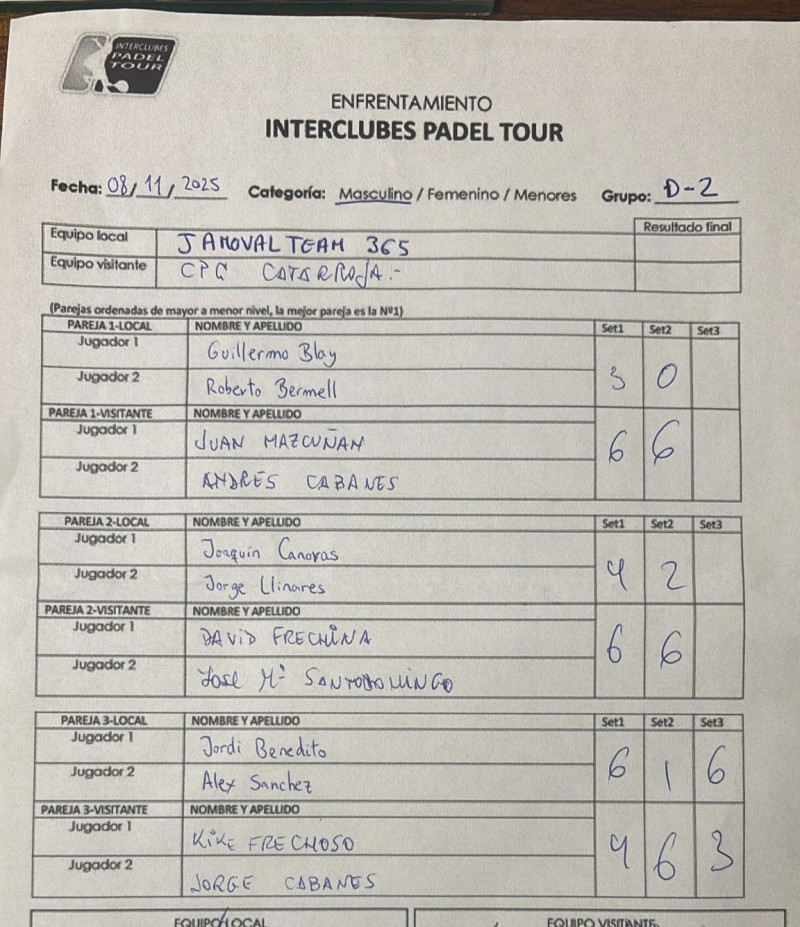 INTERCLUBES
PADEL
TOUR
ENFRENTAMIENTO
INTERCLUBES PADEL TOUR
Fecha: 08/11/2025 Categoría: Masculino / Femenino / Menores Grupo: D-2
Resultado final
Equipo local JAMOVAL TEAM 365
Equipo visitante CPC CATARROJA.-
(Parejas ordenadas de mayor a menor nivel, la mejor pareja es la Nº1)
PAREJA 1-LOCAL NOMBRE Y APELLIDO Set1 Set2 Set3
Jugador 1 Guillermo Blay
Jugador 2 Roberto Bermell
3 0
PAREJA 1-VISITANTE NOMBRE Y APELLIDO
Jugador 1 JUAN MAZCUÑAN
6 6
Jugador 2 ANDRES CABANES
PAREJA 2-LOCAL NOMBRE Y APELLIDO Set1 Set2 Set3
Jugador 1 Joaquin Canovas
Jugador 2 Jorge Llinares
4 2
PAREJA 2-VISITANTE NOMBRE Y APELLIDO
Jugador 1 DAVID FRECHINA
6 6
Jugador 2 Jose Mª SANTODOMINGO
PAREJA 3-LOCAL NOMBRE Y APELLIDO Set1 Set2 Set3
Jugador 1 Jordi Benedito
Jugador 2 Alex Sanchez
6 1 6
PAREJA 3-VISITANTE NOMBRE Y APELLIDO
Jugador 1 KIKE FRECHOSO
4 6 3
Jugador 2 JORGE CABANES
EQUIPO LOCAL EQUIPO VISITANTE